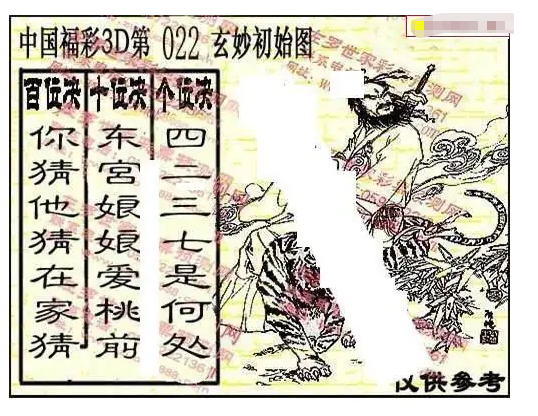 中国福彩3D第 022 玄妙初始图
百位决
你猜他猜在家猜
十位决
东宫娘娘爱桃前
个位决
四二三七是何处
仅供参考